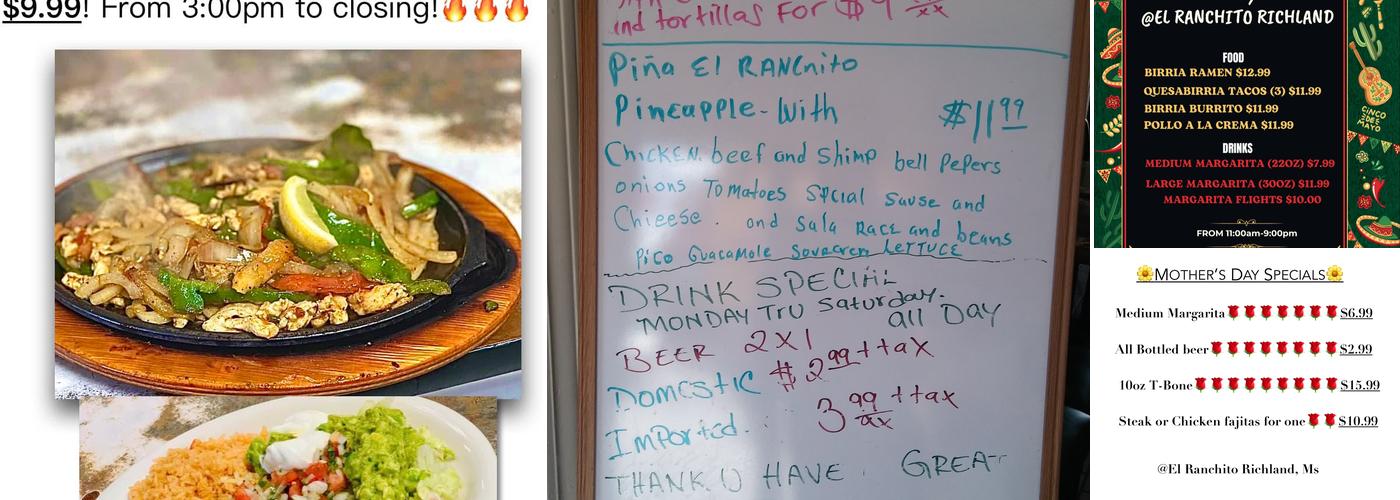 $9.99! From 3:00pm to closing!🔥🔥🔥
and tortillas For $9 99/xx
Piña El RANchito
Pineapple-With $11 99
Chicken. beef and Shimp bell Pepers
onions Tomatoes Spcial Sause and
Chieese. and Sala Race and beans
Pico Guacamole Sourcrem LETTUCE
DRINK SPECIAL
MONDAY TRU Saturday.
all DAY
BEER 2X1
DOMESTIC $2 99 + tax
Imported. 3 99 + tax
THANK U HAVE GREAT
@EL RANCHITO RICHLAND
FOOD
BIRRIA RAMEN $12.99
QUESABIRRIA TACOS (3) $11.99
BIRRIA BURRITO $11.99
POLLO A LA CREMA $11.99
DRINKS
MEDIUM MARGARITA (22OZ) $7.99
LARGE MARGARITA (30OZ) $11.99
MARGARITA FLIGHTS $10.00
FROM 11:00am-9:00pm
CINCO
DE
MAYO
🌼MOTHER'S DAY SPECIALS🌼
Medium Margarita🌹🌹🌹🌹🌹🌹🌹$6.99
All Bottled beer🌹🌹🌹🌹🌹🌹🌹🌹$2.99
10oz T-Bone🌹🌹🌹🌹🌹🌹🌹🌹$15.99
Steak or Chicken fajitas for one🌹🌹$10.99
@El Ranchito Richland, Ms